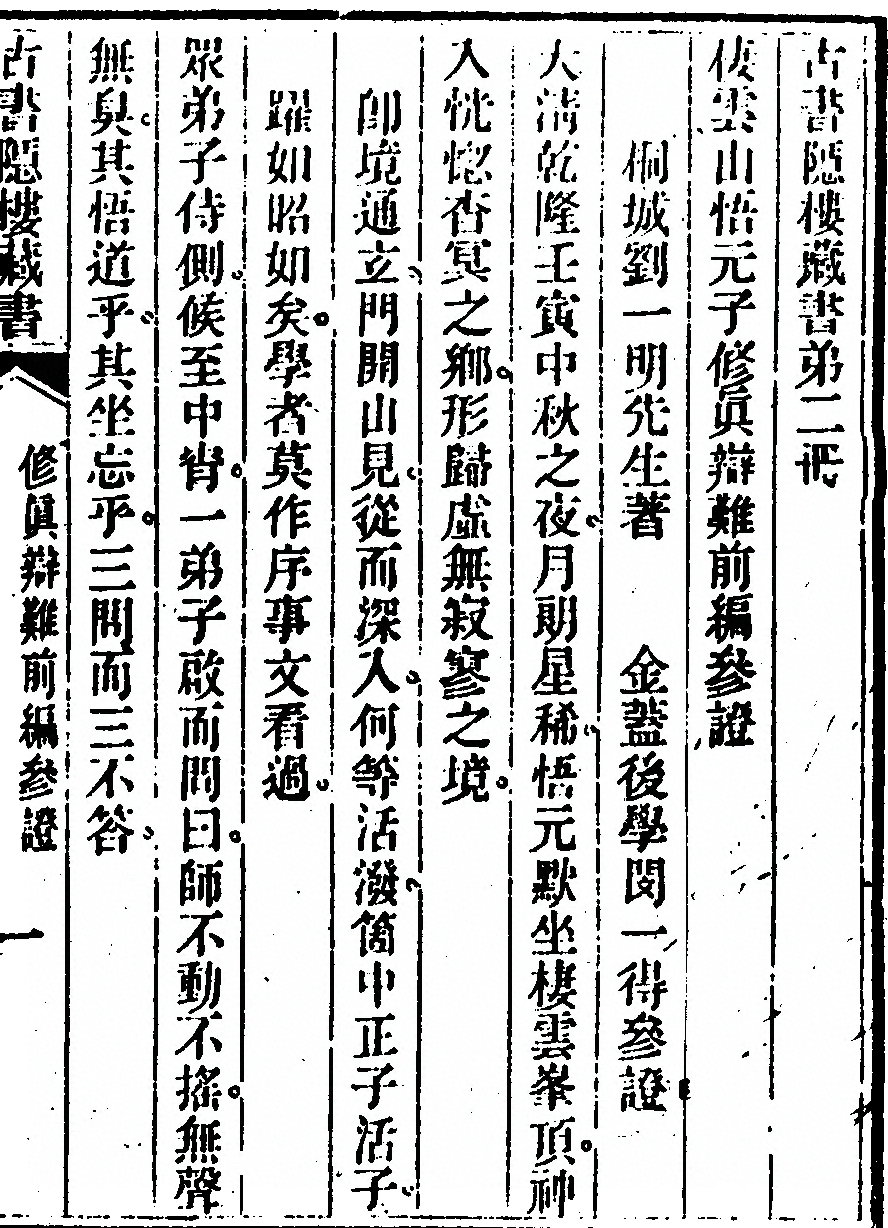 古書隱樓藏書弟二冊
棲雲山悟元子修眞辯難前編參證
桐城劉一明先生著　金蓋後學閔一得參證
大淸乾隆壬寅中秋之夜月朗星稀悟元默坐棲雲峯頂神
入恍惚杳冥之鄉形歸虛無寂寥之境
卽境通立門開山見從而深入何等活潑箇中正子活子
躍如昭如矣學者莫作序事文看過
眾弟子侍側候至中宵一弟子啟而問曰師不動不搖無聲
無臭其悟道乎其坐忘乎三問而三不答
古書隱樓藏書
修眞辯難前編參證
一